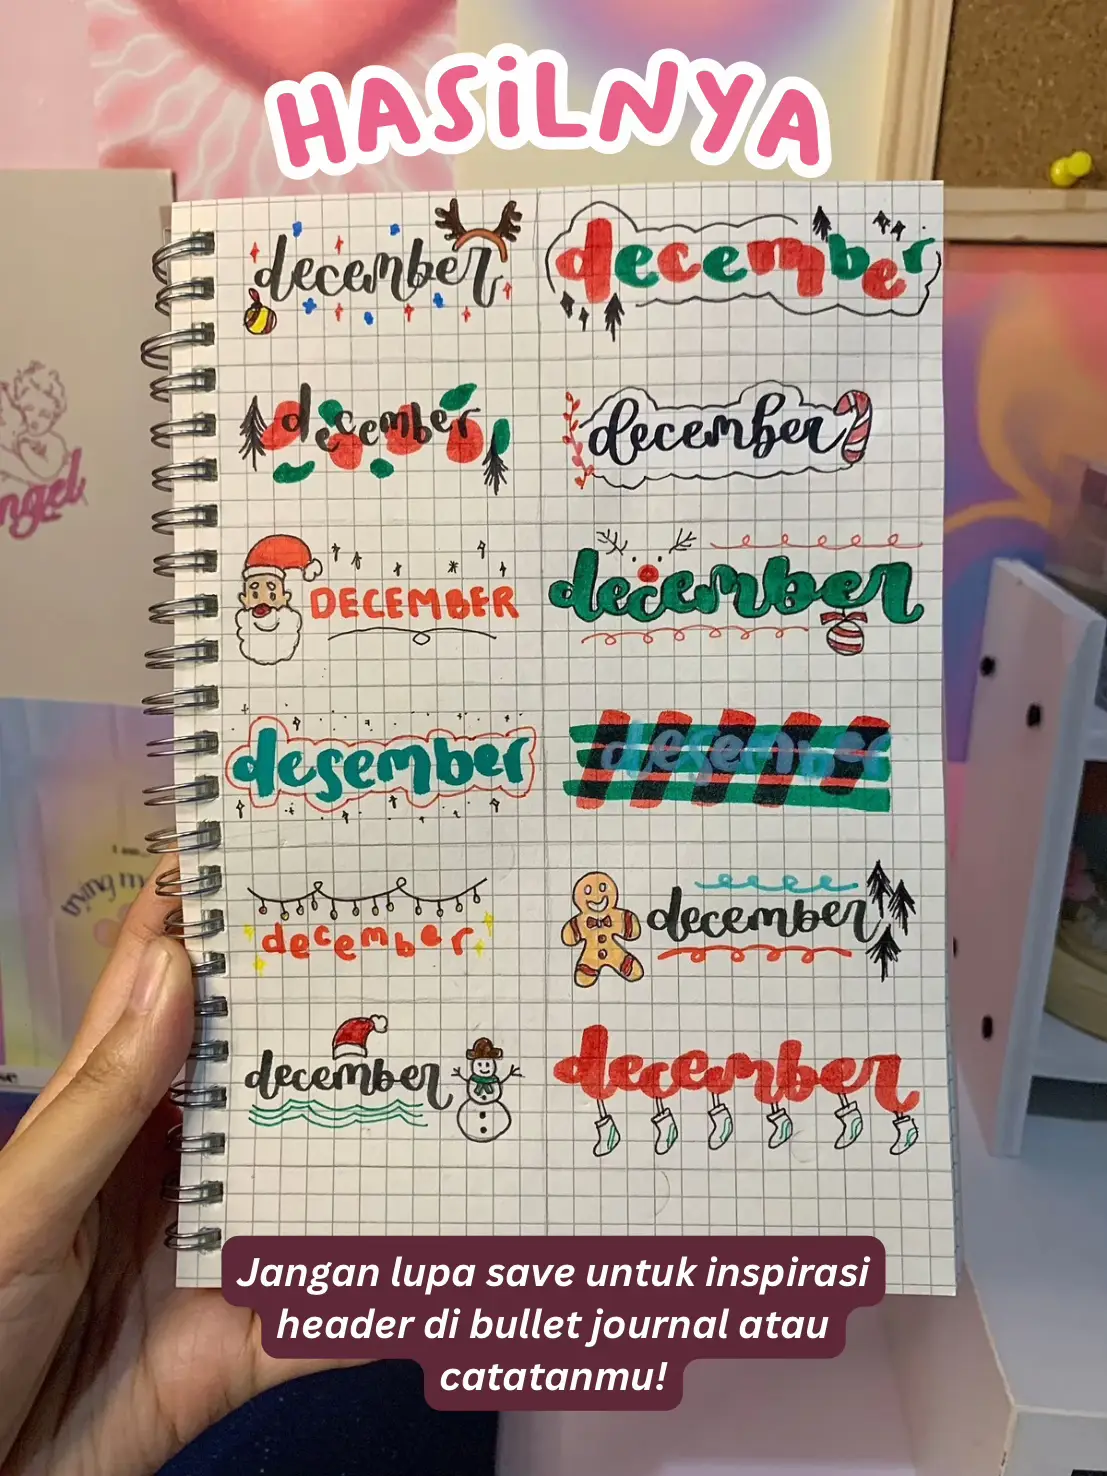 HASiLNYA
december
december
december
december
DECEMBER
december
desember
desember
december
december
december
december
ngel
trying m
Jangan lupa save untuk inspirasi
header di bullet journal atau
catatanmu!